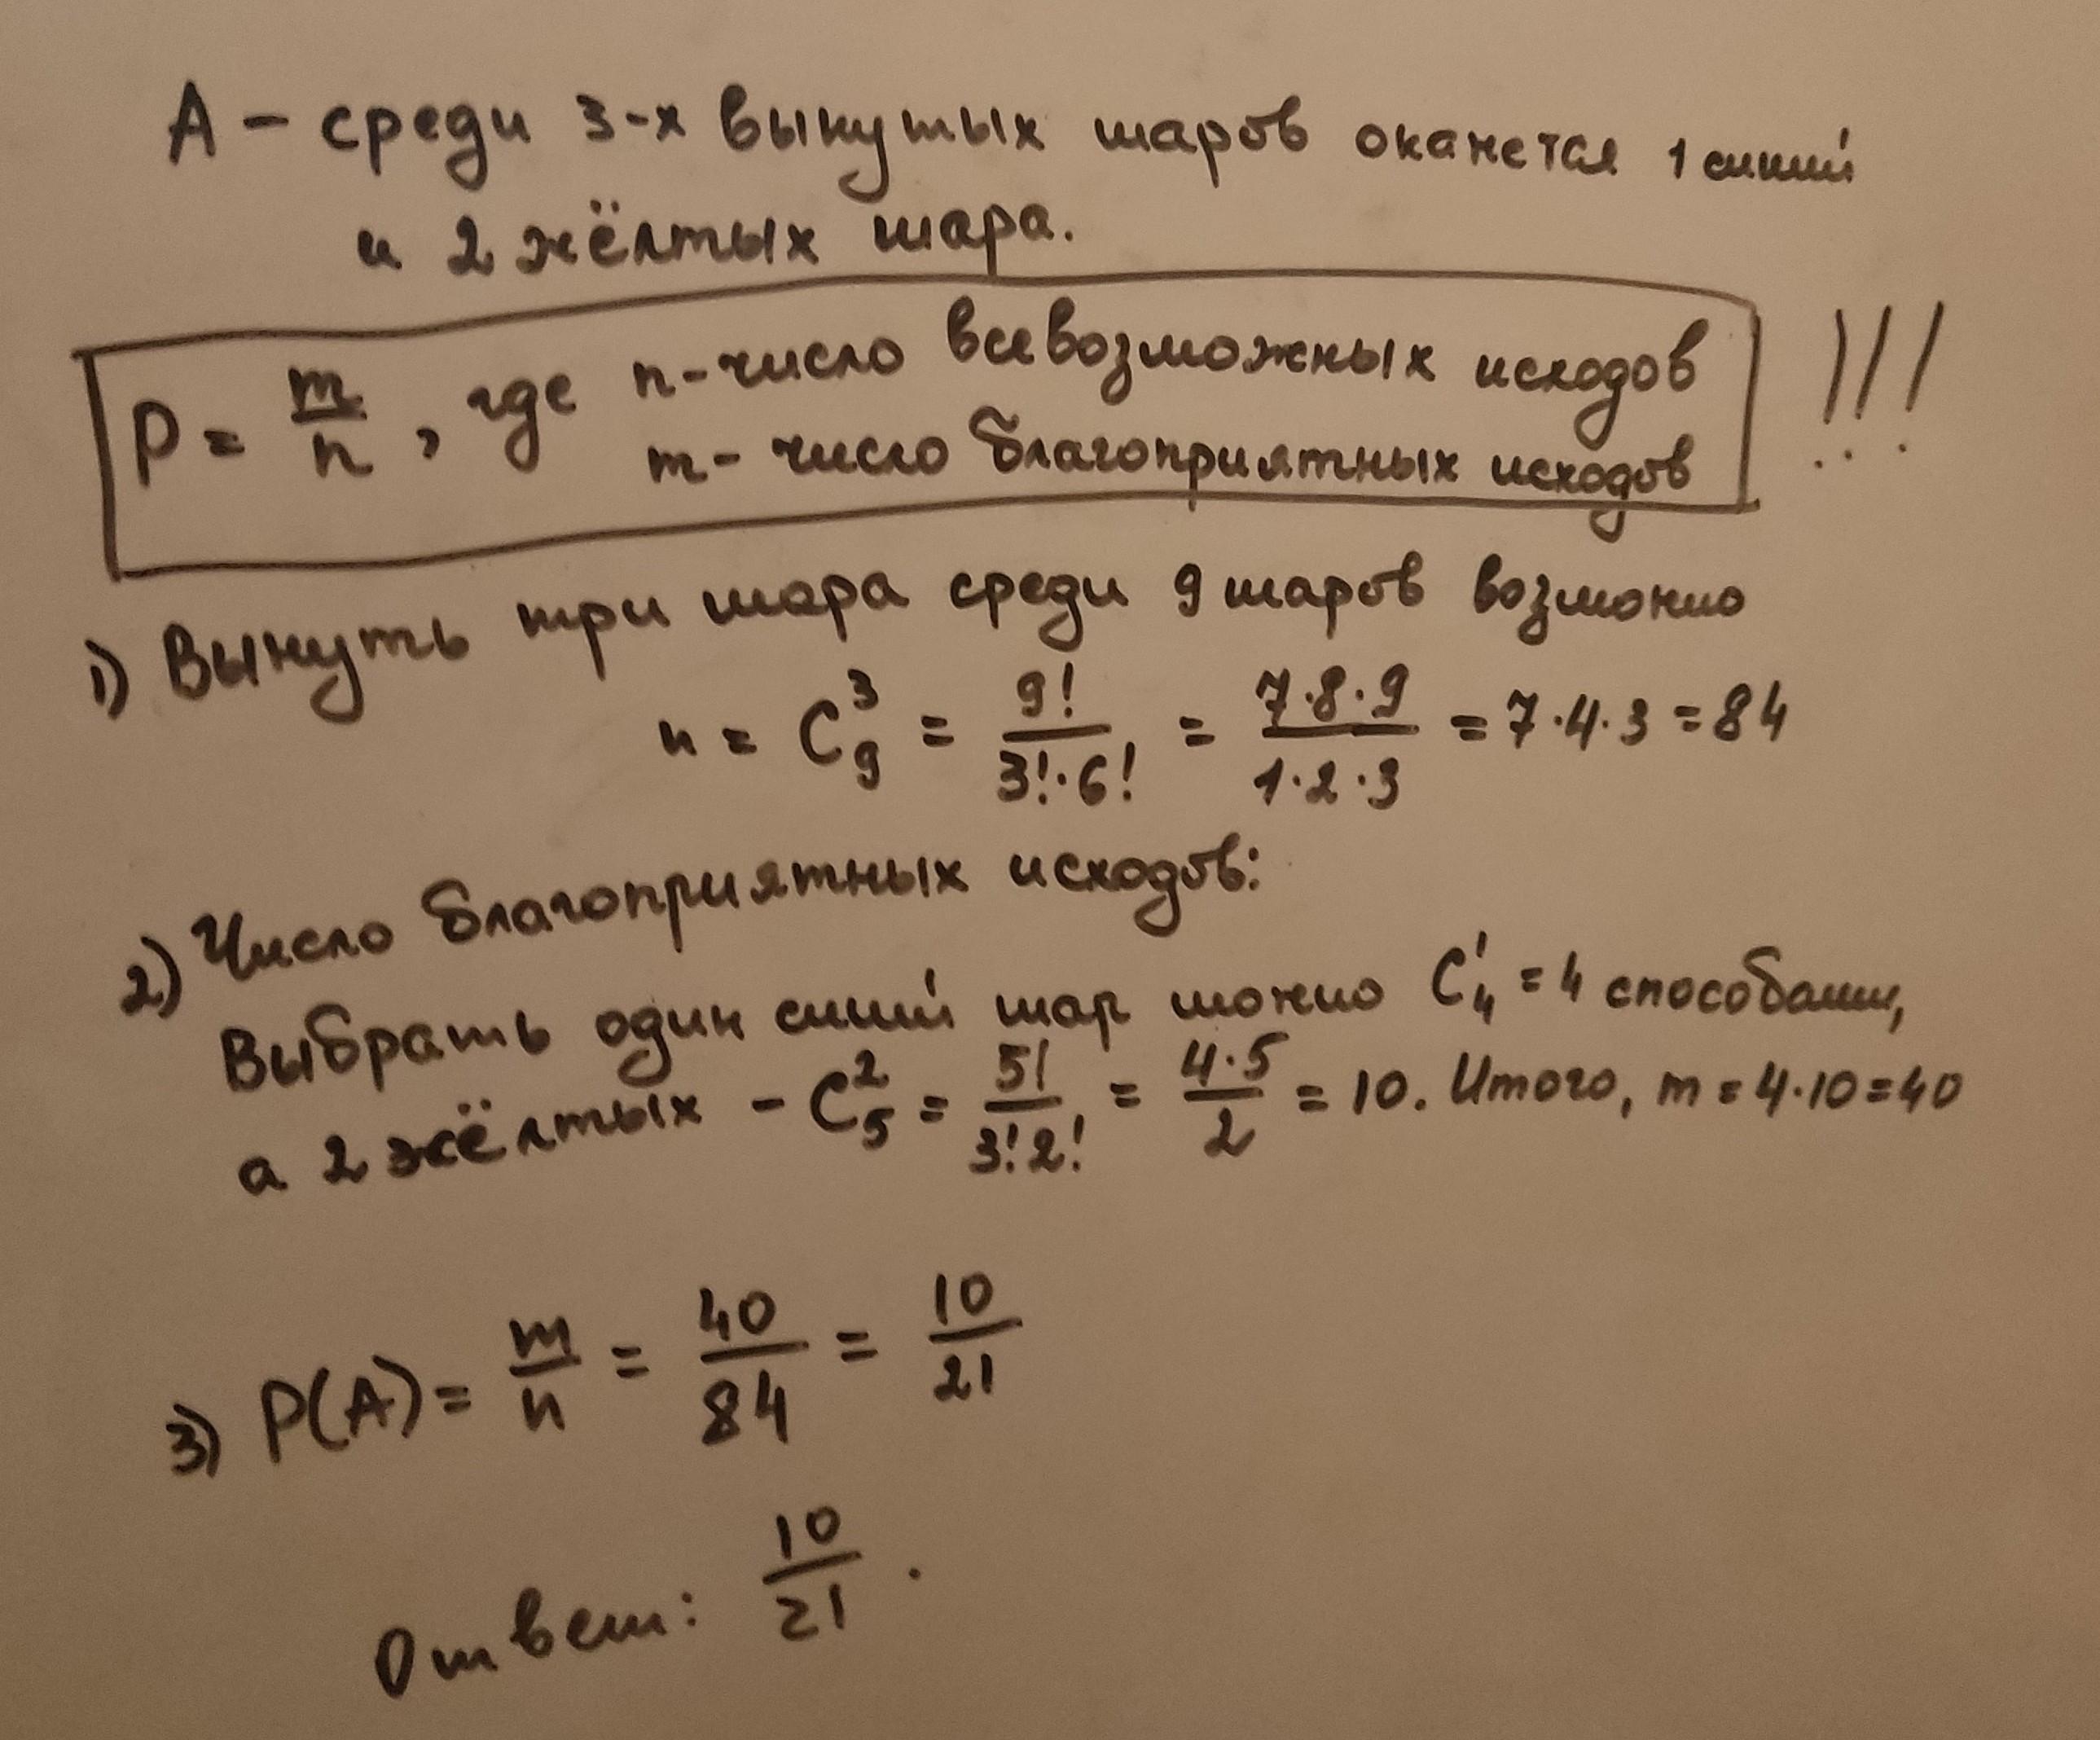 А – среди 3-х вынутых шаров окажется 1 синий
и 2 жёлтых шара.
P = m/n, где n - число всевозможных исходов !!!
m - число благоприятных исходов
1) Вынуть три шара среди 9 шаров возможно
n = C₉³ = 9!/(3!·6!) = (7·8·9)/(1·2·3) = 7·4·3 = 84
2) Число благоприятных исходов:
Выбрать один синий шар можно C₄¹ = 4 способами,
а 2 жёлтых – C₅² = 5!/(3!2!) = (4·5)/2 = 10. Итого, m = 4·10 = 40
3) P(A) = m/n = 40/84 = 10/21
Ответ: 10/21.